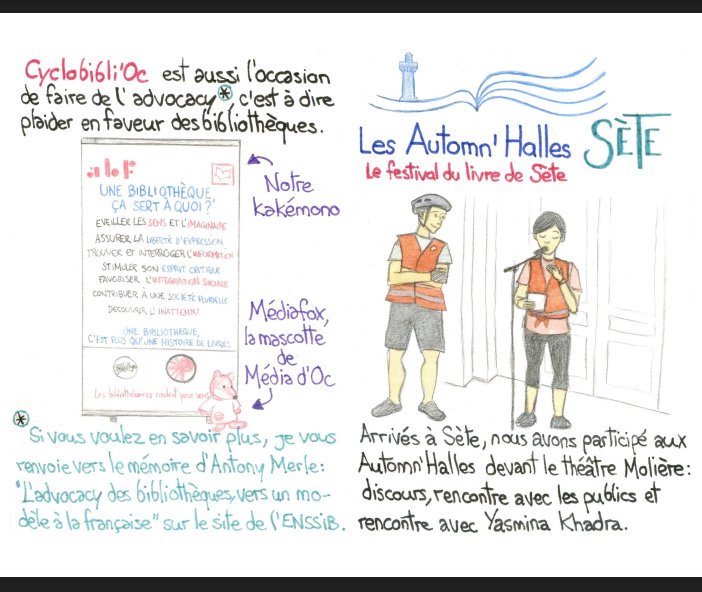 Cyclobibli'Oc est aussi l'occasion
de faire de l'advocacy*, c'est à dire
plaider en faveur des bibliothèques.
abf
UNE BIBLIOTHÈQUE
ÇA SERT À QUOI ?
EVEILLER LES SENS ET L'IMAGINAIRE
ASSURER LA LIBERTÉ D'EXPRESSION
TROUVER ET INTERROGER L'INFORMATION
STIMULER SON ESPRIT CRITIQUE
FAVORISER L'INTEGRATION SOCIALE
CONTRIBUER À UNE SOCIÉTÉ PLURIELLE
DECOUVRIR L'INATTENDU
UNE BIBLIOTHEQUE,
C'EST PLUS QU'UNE HISTOIRE DE LIVRES
Les bibliothécaires roulent pour vous
Notre
kakémono
Médiafox,
la mascotte
de
Média d'Oc
* Si vous voulez en savoir plus, je vous
renvoie vers le mémoire d'Antony Merle:
"L'advocacy des bibliothèques, vers un mo-
dèle à la française" sur le site de l'ENSSIB.
Les Automn'Halles SÈTE
Le festival du livre de Sète
Arrivés à Sète, nous avons participé aux
Automn'Halles devant le théâtre Molière:
discours, rencontre avec les publics et
rencontre avec Yasmina Khadra.